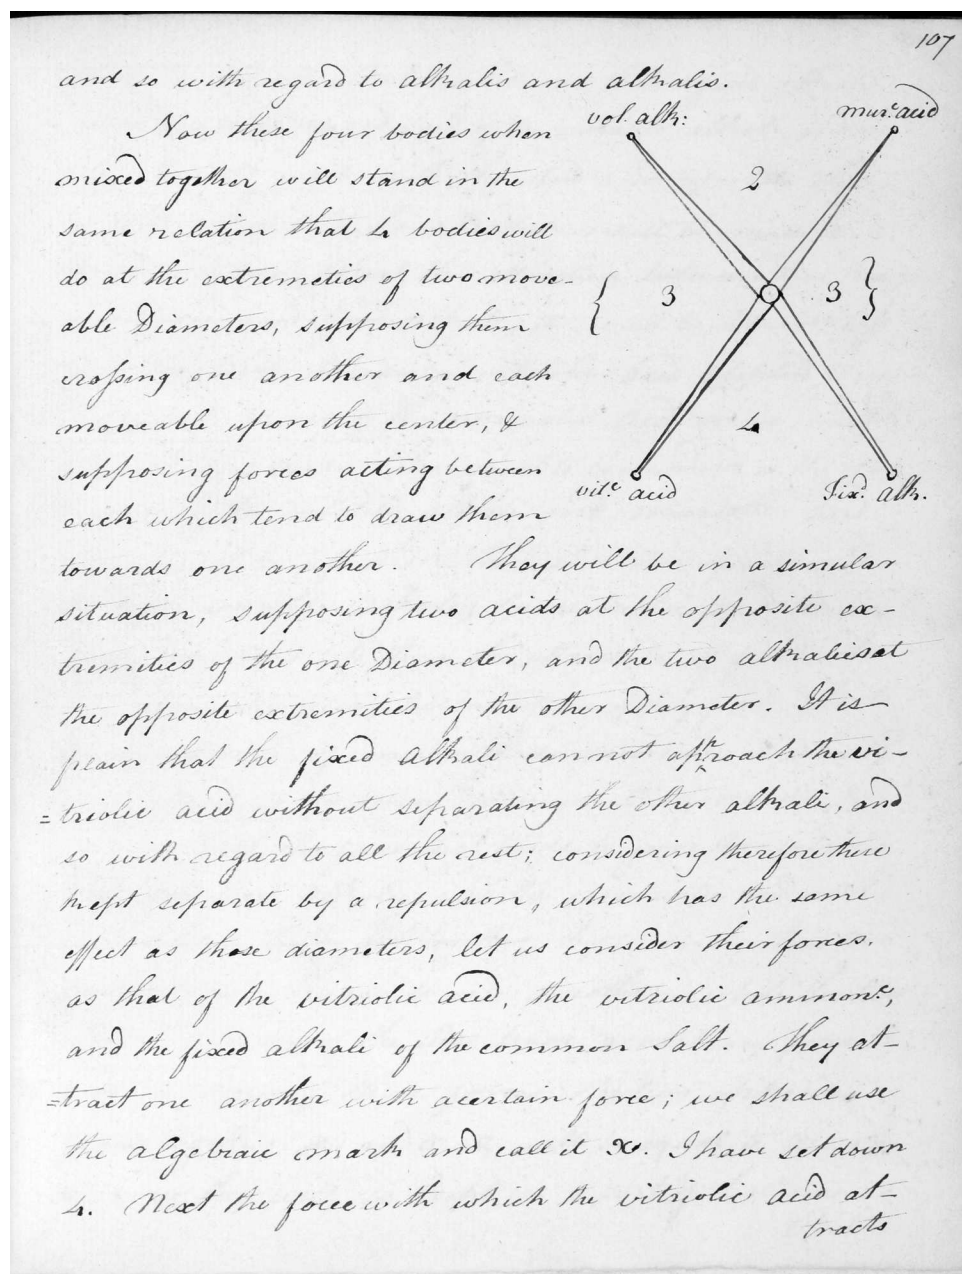 107
and so with regard to alkalis and alkalis.
Now these four bodies when
mixed together will stand in the
same relation that 4 bodies will
do at the extremeties of two move-
able Diameters, supposing them
crossing one another and each
moveable upon the center, &
supposing forces acting between
each which tend to draw them
vol. alk:
mur.c acid
2
{ 3
3 }
4
vit.c acid
Fix.d alk.
towards one another. They will be in a simular
situation, supposing two acids at the opposite ex-
tremities of the one Diameter, and the two alkalies at
the opposite extremities of the other Diameter. It is
plain that the fixed alkali cannot approach the vi-
=triolic acid without separating the other alkali, and
so with regard to all the rest; considering therefore these
kept separate by a repulsion, which has the same
effect as those diameters, let us consider their forces.
as that of the vitriolic acid, the vitriolic ammon.c,
and the fixed alkali of the common Salt. They at-
=tract one another with acertain force; we shall use
the algebraic mark and call it x. I have set down
4. Next the force with which the vitriolic acid at-
tracts